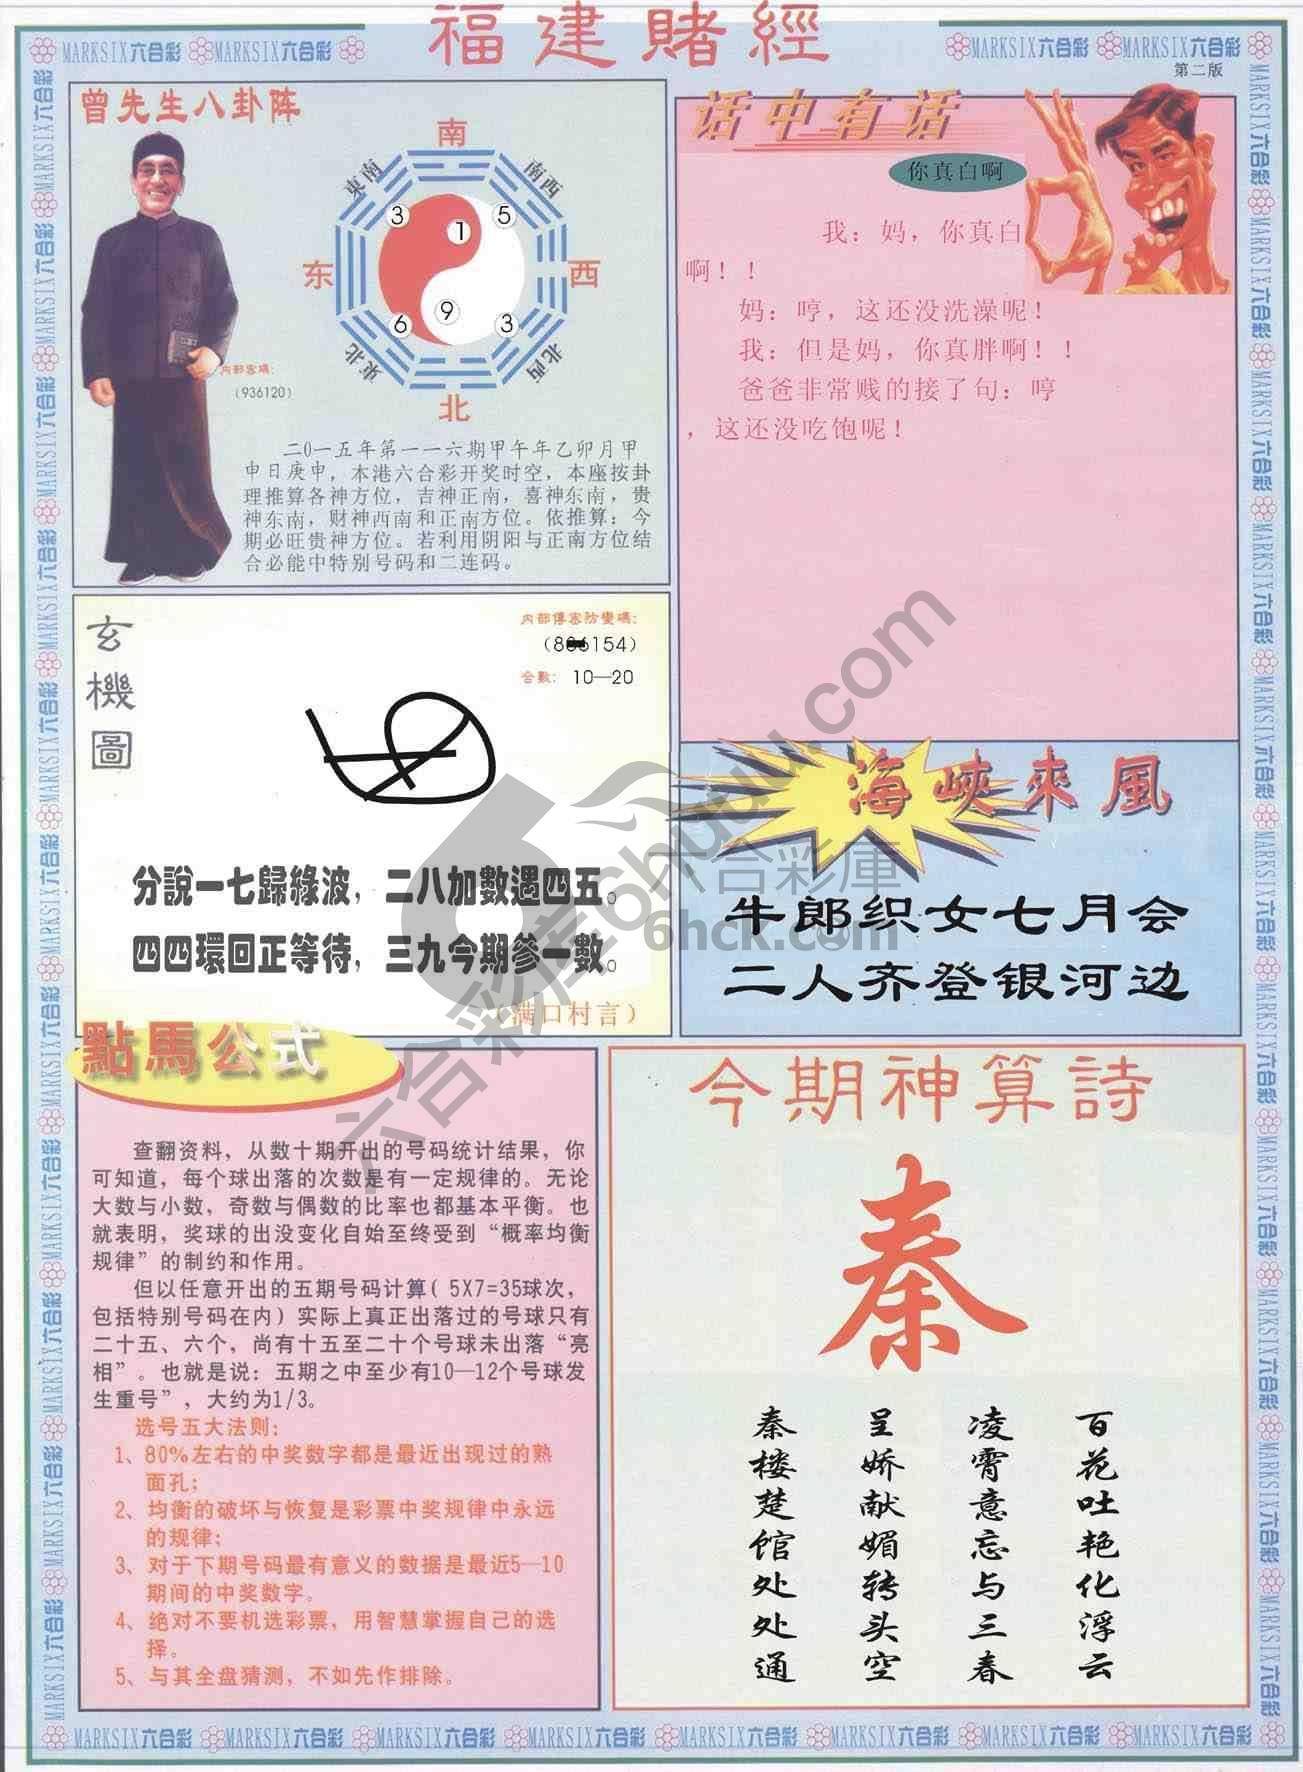 福建賭經
MARKSIX六合彩 MARKSIX六合彩
MARKSIX六合彩 MARKSIX六合彩
第二版
曾先生八卦阵
南
東南
南西
3
5
1
东
西
9
6
3
東北
北西
北
内部密码:
(936120)
二0一五年第一一六期甲午年乙卯月甲
申日庚申，本港六合彩开奖时空，本座按卦
理推算各神方位，吉神正南，喜神东南，贵
神东南，财神西南和正南方位。依推算：今
期必旺贵神方位。若利用阴阳与正南方位结
合必能中特别号码和二连码。
话中有话
你真白啊
我：妈，你真白
啊！！
妈：哼，这还没洗澡呢！
我：但是妈，你真胖啊！！
爸爸非常贱的接了句：哼
，这还没吃饱呢！
玄機圖
内部傳密防變碼:
154)
合數: 10—20
分說一七歸綠波，二八加數遇四五。
四四環回正等待，三九今期參一數。
(满口村言)
海峽來風
牛郎织女七月会
二人齐登银河边
六合彩庫
6hck.com
點馬公式
查翻资料，从数十期开出的号码统计结果，你
可知道，每个球出落的次数是有一定规律的。无论
大数与小数，奇数与偶数的比率也都基本平衡。也
就表明，奖球的出没变化自始至终受到“概率均衡
规律”的制约和作用。
但以任意开出的五期号码计算( 5X7=35球次，
包括特别号码在内）实际上真正出落过的号球只有
二十五、六个，尚有十五至二十个号球未出落“亮
相”。也就是说：五期之中至少有10—12个号球发
生重号”，大约为1/3。
选号五大法则:
1、80%左右的中奖数字都是最近出现过的熟
面孔;
2、均衡的破坏与恢复是彩票中奖规律中永远
的规律;
3、对于下期号码最有意义的数据是最近5—10
期间的中奖数字。
4、绝对不要机选彩票，用智慧掌握自己的选
择。
5、与其全盘猜测，不如先作排除。
今期神算詩
秦
百花吐艳化浮云
凌霄意忘与三春
呈娇献媚转头空
秦楼楚馆处处通
MARKSIX六合彩 MARKSIX六合彩 MARKSIX六合彩 MARKSIX六合彩 MARKSIX六合彩 MARKSIX六合彩 MARKSIX六合彩 MARKSIX六合彩